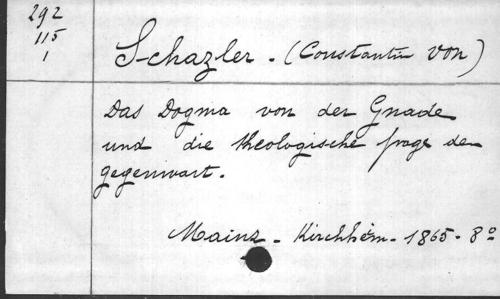 292
115
1
Schazler. (Constantin von)
Das Dogma von der Gnade
und die theologische frage der
gegenwart.
Mainz - Kirchheim - 1865 - 8º